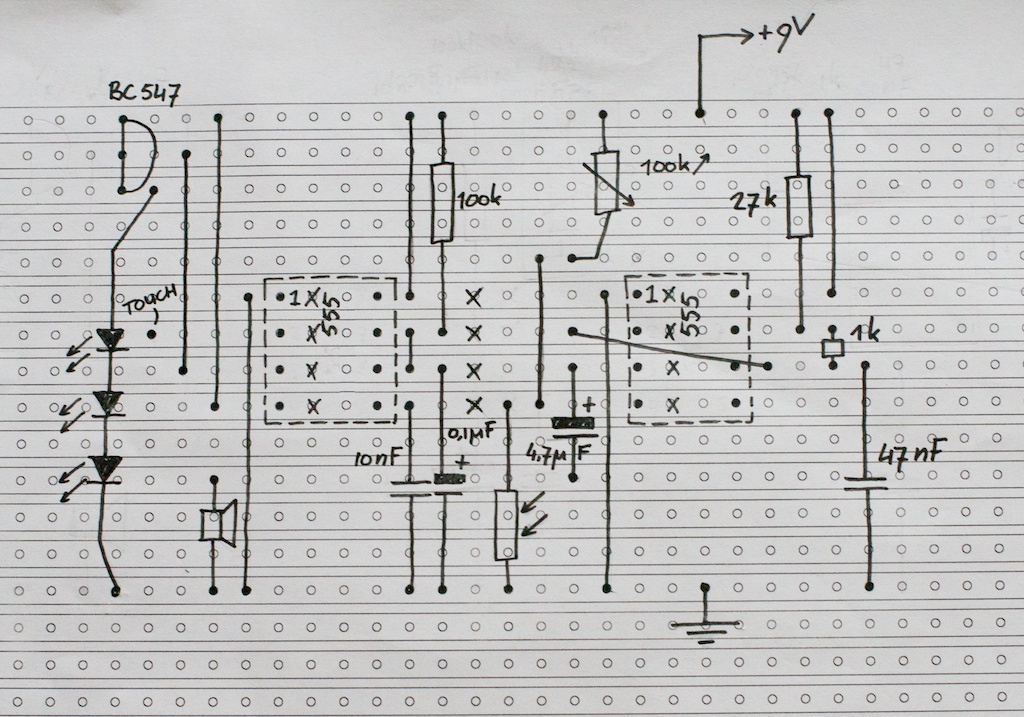 +9V
BC547
100k
100k
27k
TOUCH
1X
555
X
1X
555
X
X
X
X
1k
X
X
X
X
X
X
+
0.1µF
10nF
+
4.7µF
47nF